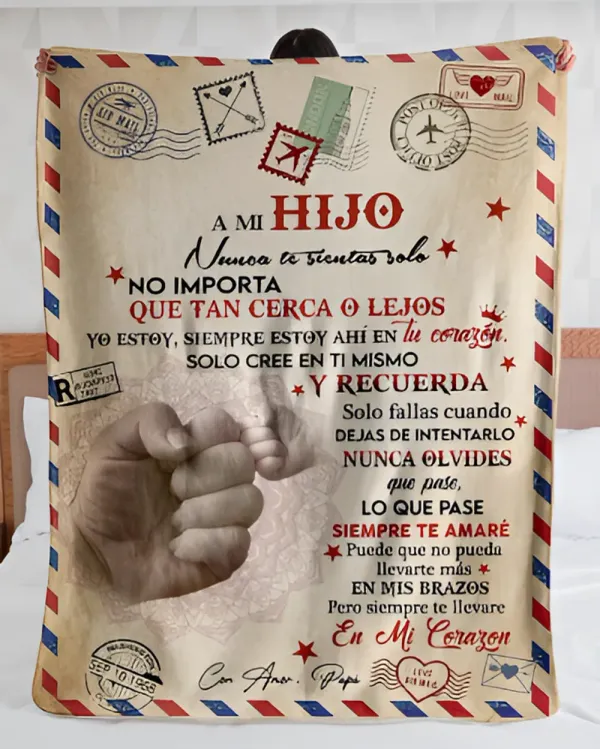 AIR MAIL
POST OFFICE
POST OFFICE
LOVE MAIL
A MI HIJO
Nunca te sientas solo
NO IMPORTA
QUE TAN CERCA O LEJOS
YO ESTOY, SIEMPRE ESTOY AHÍ EN tu corazón.
SOLO CREE EN TI MISMO
Y RECUERDA
R
Solo fallas cuando
DEJAS DE INTENTARLO
NUNCA OLVIDES
que pase,
LO QUE PASE
SIEMPRE TE AMARÉ
Puede que no pueda
llevarte más
EN MIS BRAZOS
Pero siempre te llevare
En Mi Corazon
SEP 10 1958
Con Amor, Papá
LOVE